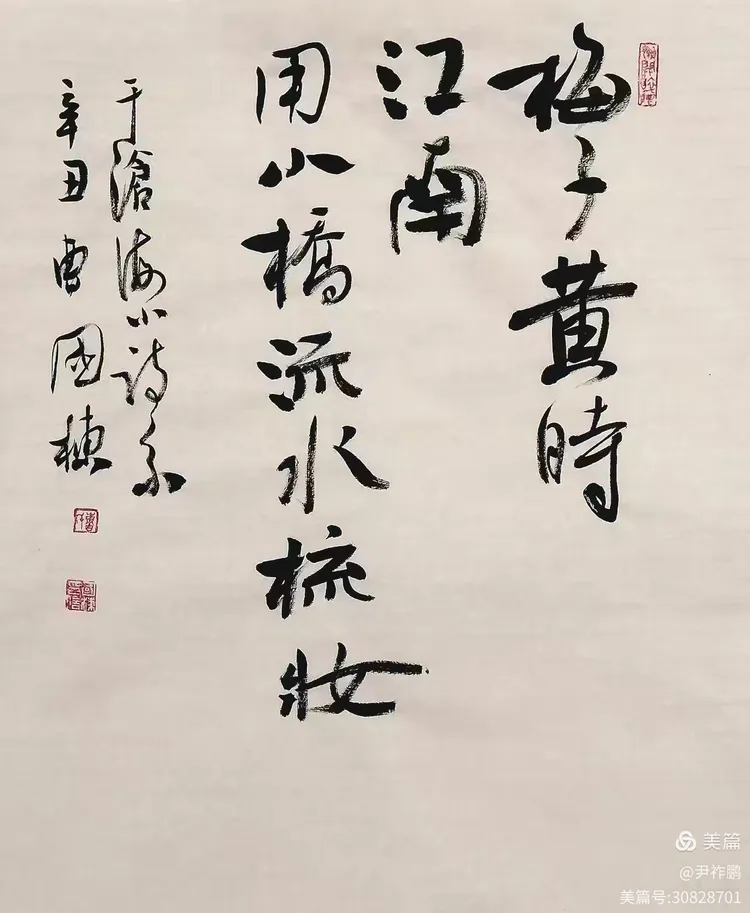 梅子黄時
江南
用小橋流水梳妝
于滄海小詩
辛丑曹國棟
美篇
@尹祚鹏
美篇号:30828701